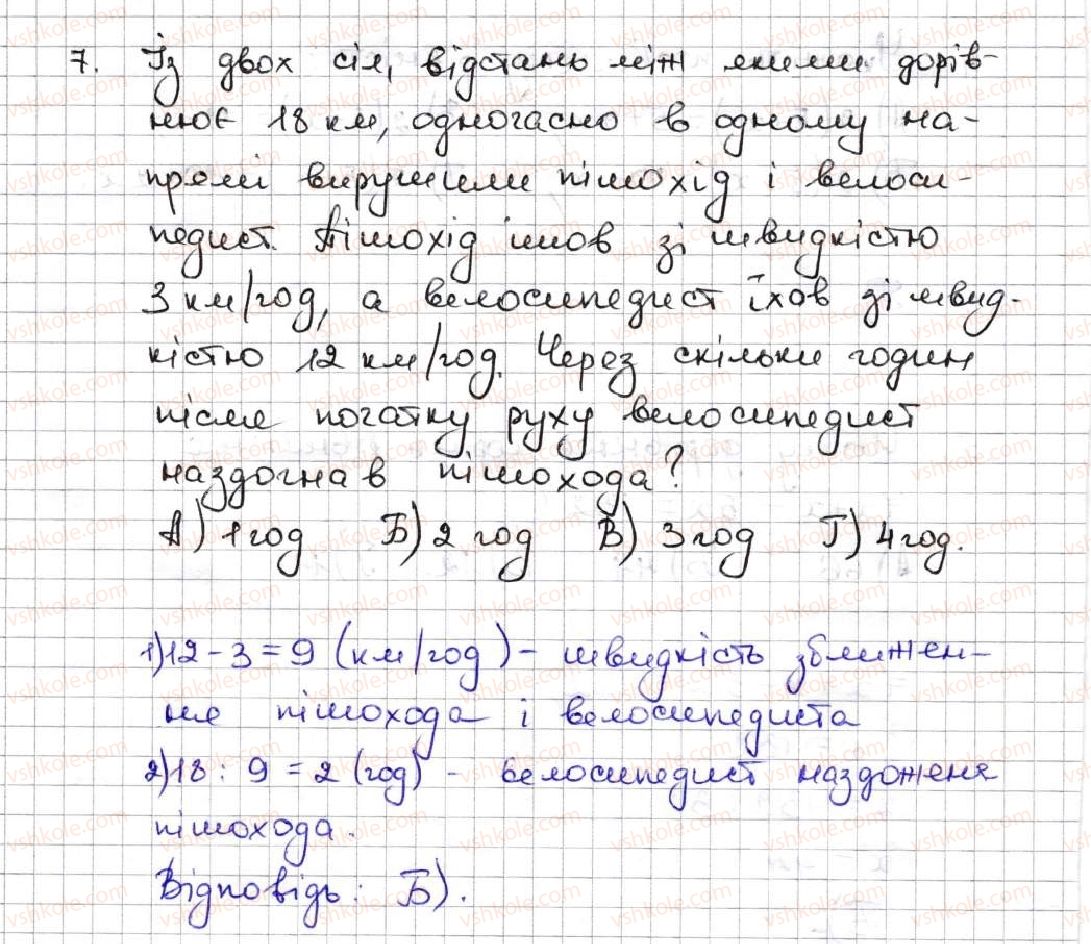 7. Із двох сіл, відстань між якими дорів-
нює 18 км, одночасно в одному на-
прямі вирушили пішохід і велоси-
педист. Пішохід ішов зі швидкістю
3 км/год, а велосипедист їхов зі швид-
кістю 12 км/год. Через скільки годин
після початку руху велосипедист
наздогнав пішохода?
А) 1 год Б) 2 год В) 3 год Г) 4 год.
1) 12 - 3 = 9 (км/год) - швидкість зближен-
ня пішохода і велосипедиста
2) 18 : 9 = 2 (год) - велосипедист наздожене
пішохода.
Відповідь: Б).